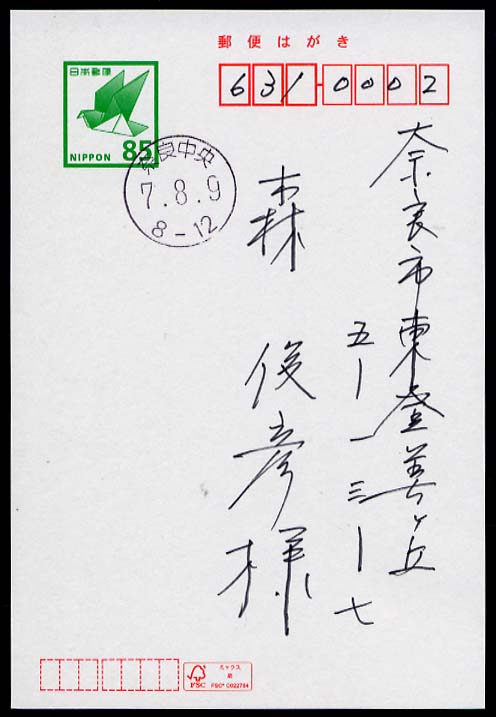 郵便はがき
日本郵便
NIPPON 85
631-0002
奈良中央
7.8.9
8-12
奈良市東登美ヶ丘
五ー一三ー七
森 俊彦様
ミックス
紙
FSC
FSC® C022784